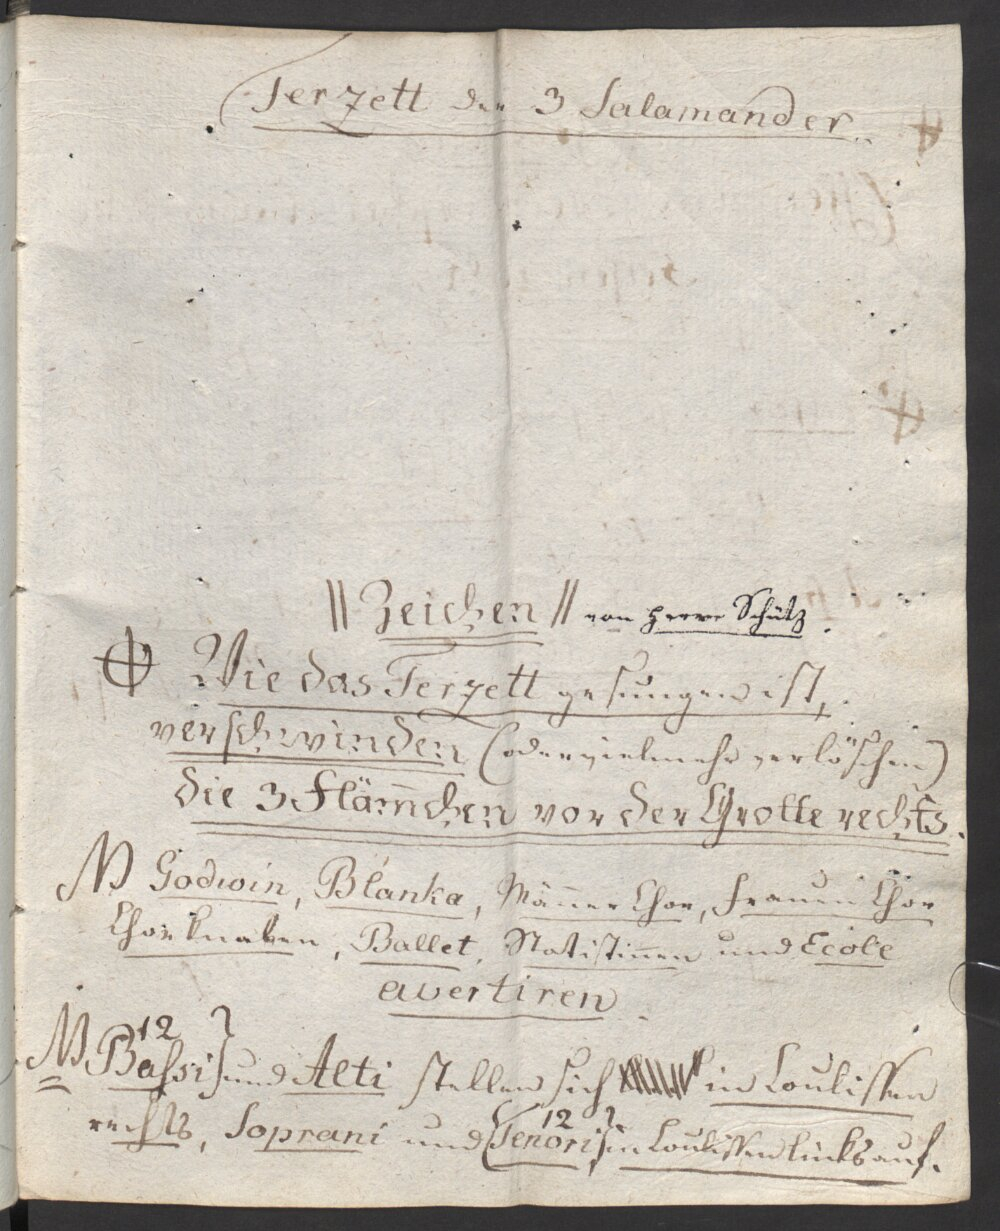 Terzett der 3 Salamander.
|| Zeichen || von Herrn Schütz.
Wie das Terzett gesungen ist,
verschwinden (oder vielmehr verlöschen)
die 3 Flam̅chen vor der Grotte rechts.
Godwin, Blanka, Männer Chor, Frauen Chor
Chorknaben, Ballet, Statistinnen und Ecole
avertiren
12
Bassi} und Alti stellen sich in Coulissen
rechts, Soprani und {Tenori} in Coulissen links auf.
12